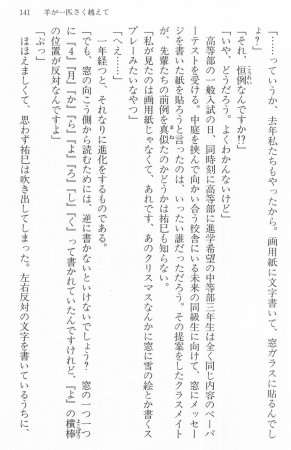 141 羊が一匹さく越えて
「……っていうか、去年私たちもやったから。画用紙に文字書いて、窓ガラスに貼るんでし
ょ」
「それ、恒例なんですか!?」
「いや、どうだろう。よくわかんないけど」
高等部の一般入試の日、同時刻に高等部に進学希望の中等部三年生は全く同じ内容のペーパ
ーテストを受ける。中庭を挟んで向かい合う校舎にいる未来の同級生に向けて、窓にメッセー
ジを書いた紙を貼ろうと言ったのは、いったい誰だっただろう。その提案をしたクラスメイト
が、先輩たちの前例を真似たのかどうかは祐巳も知らない。
「私が見たのは画用紙じゃなくて、あれです、あのクリスマスなんかに窓に雪の絵とか書くス
プレーみたいなやつ」
「へえ……」
一年経つと、それなりに進化するものである。
「でも、窓の向こう側から読むためには、逆に書かないといけないでしょう? 窓の一つ一つ
に『4』『月』『か』『ら』『よ』『ろ』『し』『く』って書かれていたんですけれど、『よ』の横棒
の位置が反対なんですよ」
「ぷっ」
ほほえましくて、思わず祐巳は吹き出してしまった。左右反対の文字を書いているうちに、